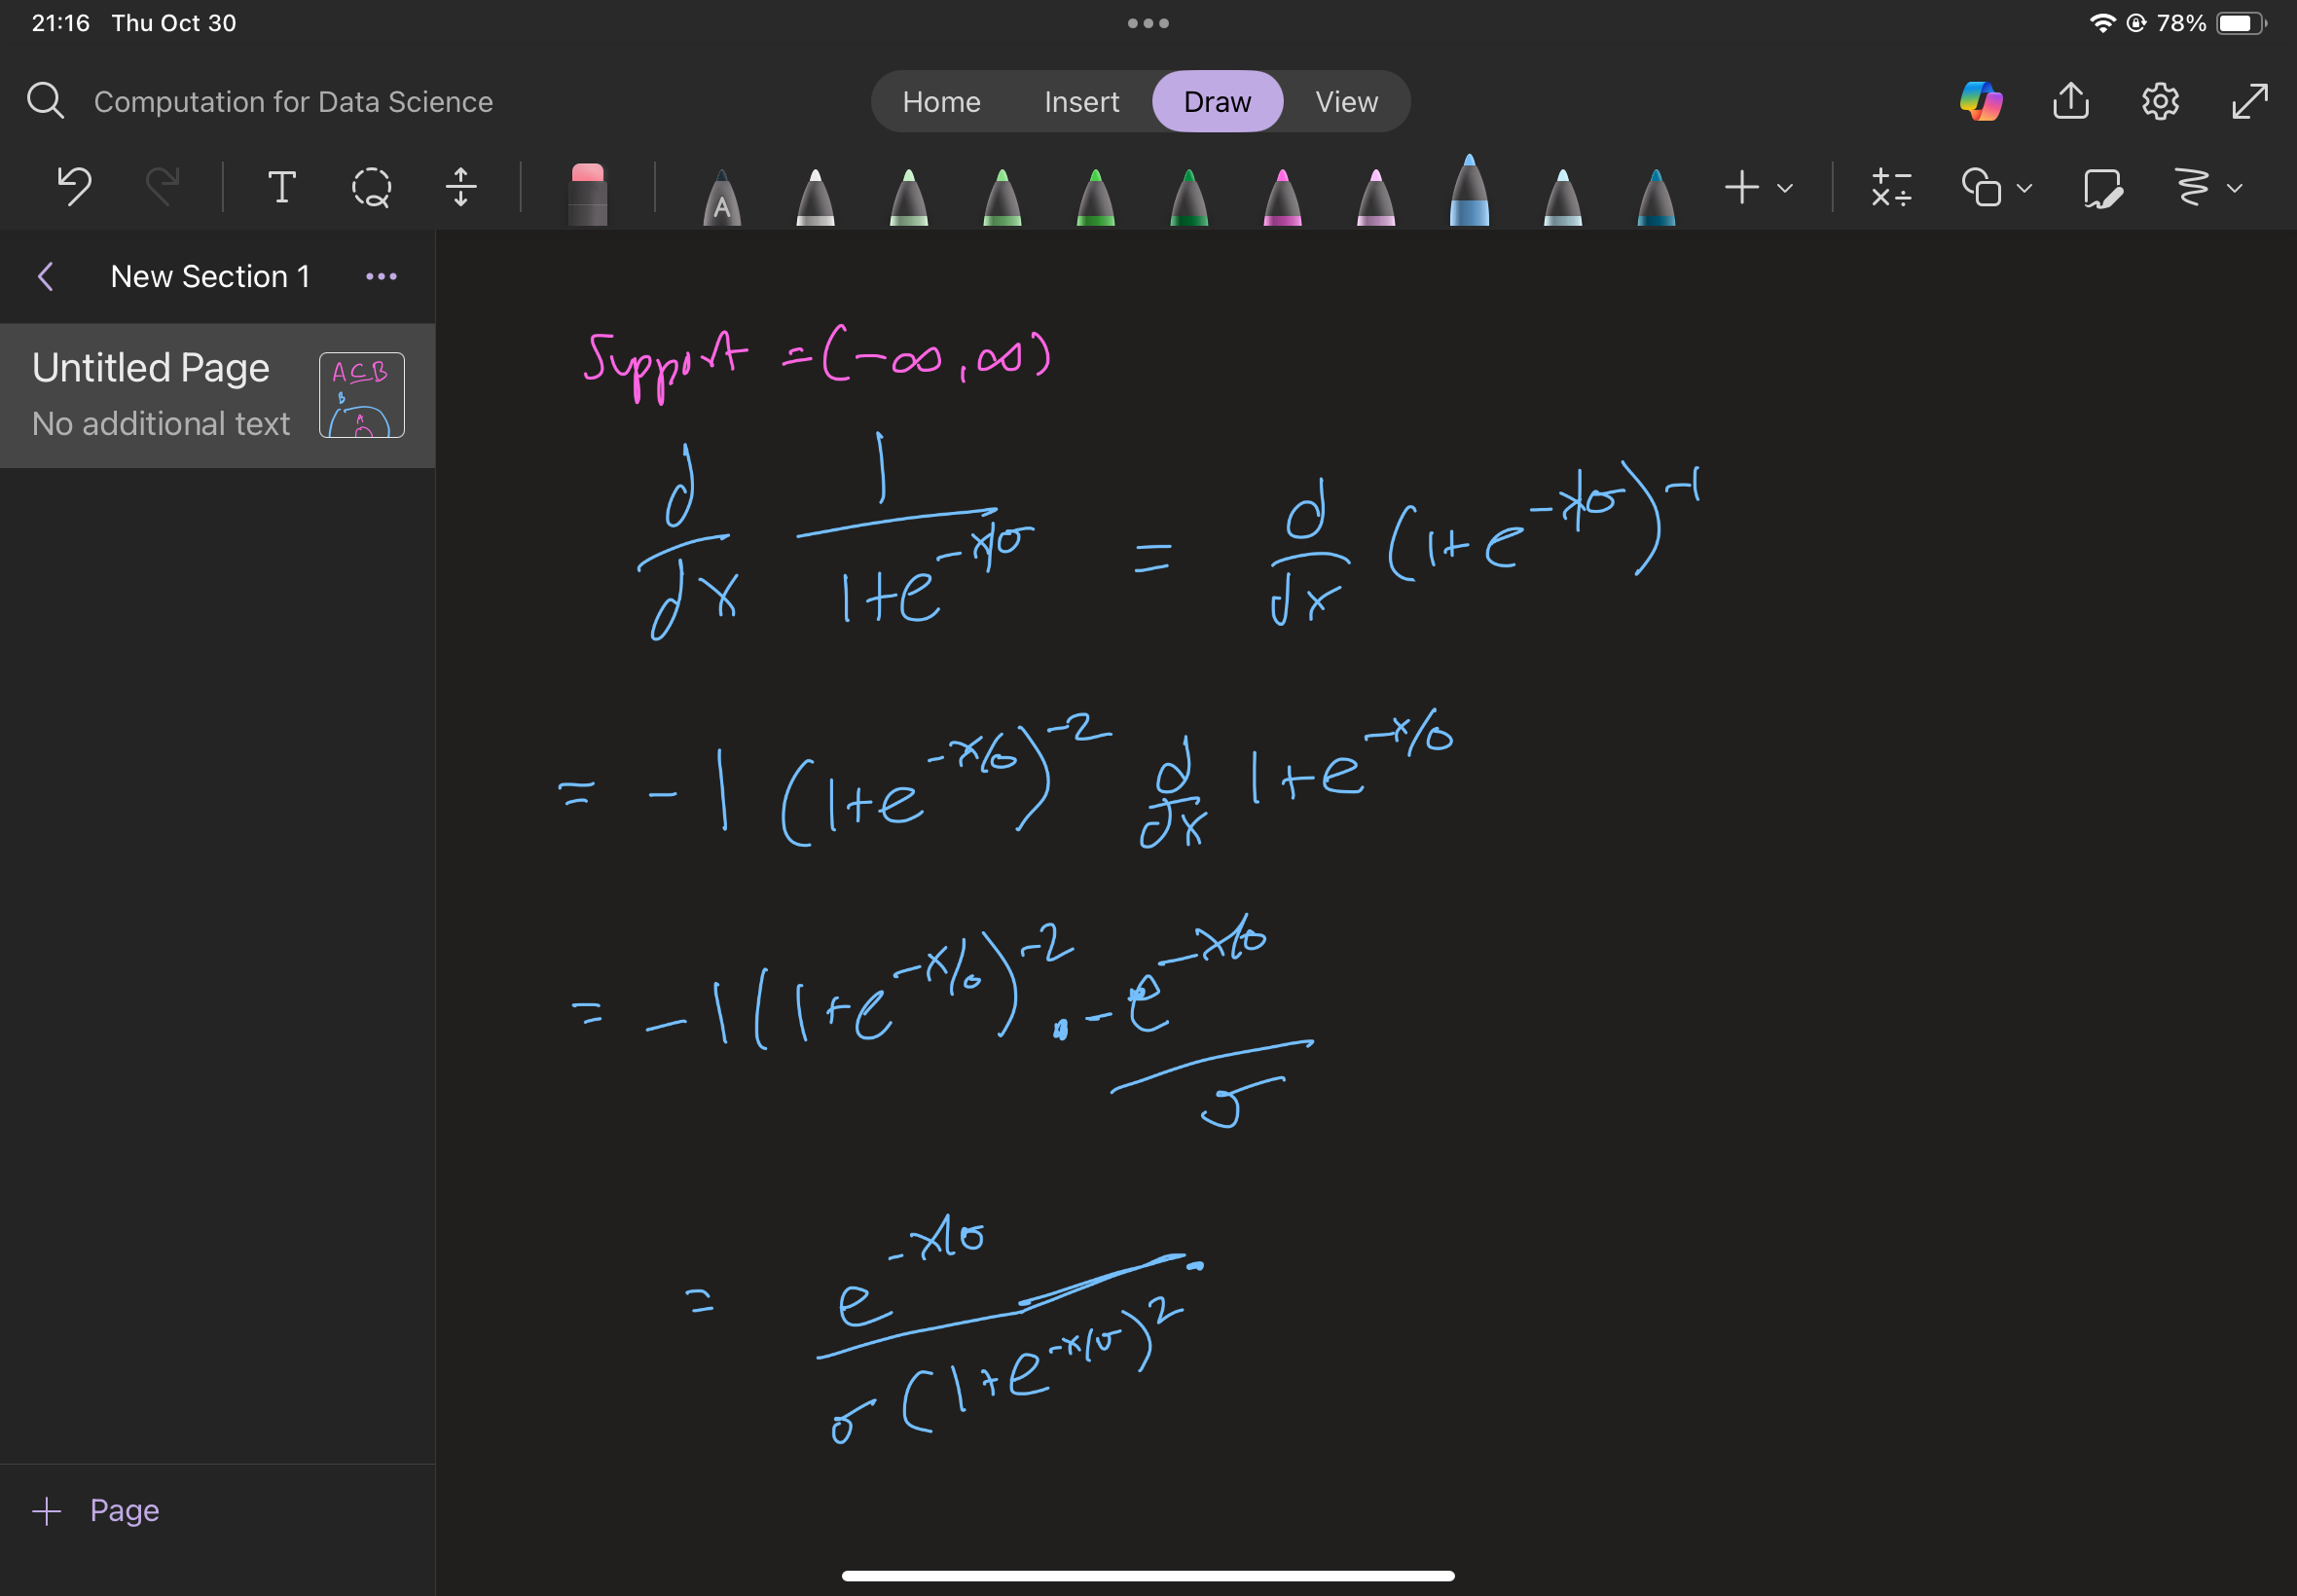 21:16 Thu Oct 30
78%
Computation for Data Science
Home Insert Draw View
T
A
New Section 1
Untitled Page
No additional text
A⊆B
B
A
Support = (-∞, ∞)
d/dx 1/(1+e^(-x/σ)) = d/dx (1+e^(-x/σ))^(-1)
= -1 (1+e^(-x/σ))^(-2) d/dx 1+e^(-x/σ)
= -1 (1+e^(-x/σ))^(-2) · -e^(-x/σ)/σ
= e^(-x/σ)/(σ(1+e^(-x/σ))^2)
+ Page